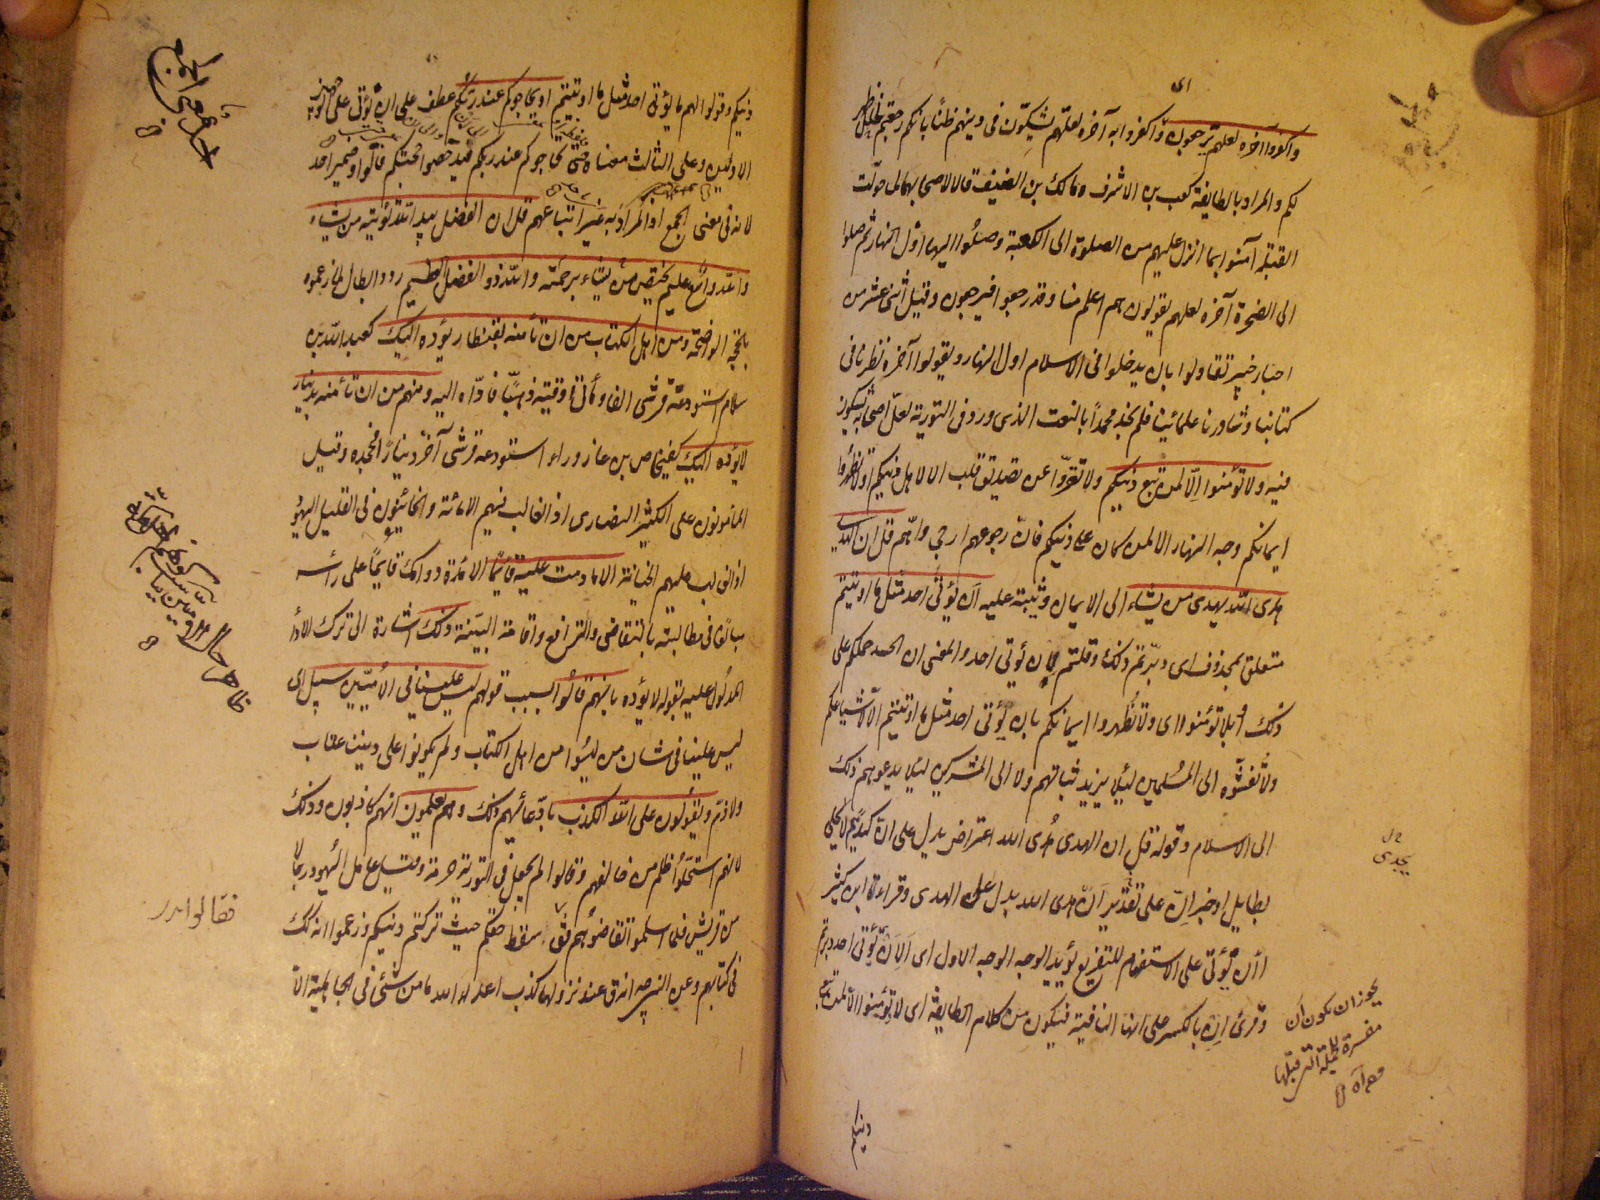 واكفروا آخره لعلهم يرجعون واكفروا به آخره لعلهم يشكون في دينهم ظنا بانكم رجعتم لخلل ظهر
لكم والمراد بالطايفة كعب بن الاشرف ومالك بن الضيف قالا لاصحابهما لما حولت
القبلة آمنوا بما انزل عليهم من الصلوة الى الكعبة وصلوا اليها اول النهار ثم صلوا
الى الصخرة آخره لعلهم يقولون هم اعلم منا وقد رجعوا فيرجعون وقيل اثنى عشر من
احبار خيبر تقاولوا بان يدخلوا فى الاسلام اول النهار ويقولوا آخره نظرنا فى
كتابنا وشاورنا علمائنا فلم نجد محمدا بالنعت الذى ورد فى التورية لعل اصحابه يشكون
فيه ولا تؤمنوا الا لمن تبع دينكم ولا تقروا عن تصديق قلب الا لاهل دينكم او لا تظهروا
ايمانكم وجه النهار الا لمن كان على دينكم فان رجوعهم ارجى واهم قل ان الهدى
هدى الله يهدى من يشاء الى الايمان ويثبته عليه ان يؤتى احد مثل ما اوتيتم
متعلق بمحذوف اى دبرتم ذلك وقلتم لان يؤتى احد والمعنى ان الحسد حملكم على
ذلك او بلا تؤمنوا اى ولا تظهروا ايمانكم بان يؤتى احد مثل ما اوتيتم الا لاشياعكم
ولا تفشوه الى المسلمين لئلا يزيد ثباتهم ولا الى المشركين لئلا يدعوهم ذلك
الى الاسلام وقوله قل ان الهدى هدى الله اعتراض يدل على ان كيدهم لا يجدى
بطايل او خبر ان على تقدير ان هدى الله بدل عن الهدى وقراءة ابن كثير
اان يؤتى على الاستفهام للتقريع يؤيد الوجه الاول اى الان يؤتى احد دبرتم
وقرئ ان بالكسر على انها النافية فيكون من كلام الطايفة اى لا تؤمنوا الا لمن تبع
يجوز ان يكون ان
مفسرة للجملة التى قبلها
دينكم
دينكم وقولوا لهم ما يؤتى احد مثل ما اوتيتم او يحاجوكم عند ربكم عطف على ان يؤتى على الوجهين
الاولين وعلى الثالث معناه حتى يحاجوكم عند ربكم فيدحضوا حجتكم والواو ضمير احد
لانه فى معنى الجمع اذ المراد به غير اتباعهم قل ان الفضل بيد الله يؤتيه من يشاء
والله واسع عليم يختص برحمته من يشاء والله ذو الفضل العظيم رد وابطال لما زعموه
بالحجة الواضحة ومن اهل الكتاب من ان تأمنه بقنطار يؤده اليك كعبد الله بن
سلام استودعه قرشى الفا ومأتى اوقية ذهبا فاداه اليه ومنهم من ان تأمنه بدينار
لا يؤده اليك كفنحاص بن عازوراء استودعه قرشى آخر دينارا فجحده وقيل
المأمونون على الكثير النصارى اذ الغالب فيهم الامانة والخائنون فى القليل اليهود
اذ الغالب عليهم الخيانة الا ما دمت عليه قائما الا مدة دوامك قايما على رأسه
مبالغا فى مطالبته بالتقاضى والترافع واقامة البينة ذلك اشارة الى ترك الاداء
المدلول عليه بقوله لا يؤده بانهم قالوا بسبب قولهم ليس علينا فى الاميين سبيل اى
ليس علينا فى شان من ليسوا من اهل الكتاب ولم يكونوا على ديننا عتاب
ولا ذم ويقولون على الله الكذب بادعائهم ذلك وهم يعلمون انهم كاذبون وذلك
لانهم استحلوا ظلم من خالفهم وقالوا لم يجعل فى التورية حرمة وقيل عامل اليهود رجالا
من قريش فلما اسلموا تقاضوهم فق سقط حقكم حيث تركتم دينكم وزعموا انه كذلك
فى كتابهم وعن النبى صه انه ق عند نزولها كذب اعداء الله ما من شئ فى الجاهلية الا
فقالوا